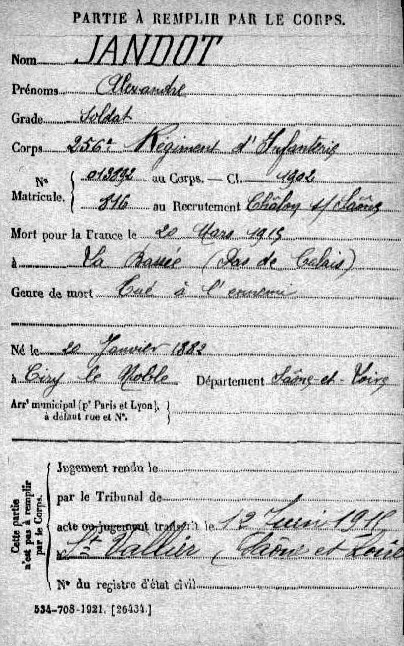 PARTIE À REMPLIR PAR LE CORPS.
Nom JANDOT
Prénoms Alexandre
Grade Soldat
Corps 256e Régiment d'Infanterie
Nos Matricule. { 013892 au Corps. — Cl. 1902
816 au Recrutement Châlon s/ Saône
Mort pour la France le 20 Mars 1915
à La Bassée (Pas de Calais)
Genre de mort Tué à l'ennemi
Né le 20 Janvier 1882
à Ciry le Noble Département Saône-et-Loire
Arrt municipal (pr Paris et Lyon), à défaut rue et N°.
Cette partie n'est pas à remplir par le Corps.
Jugement rendu le
par le Tribunal de
acte ou jugement transcrit le 12 Juin 1915
à St Vallier (Saône et Loire
N° du registre d'état civil
534-708-1921. [26434.]